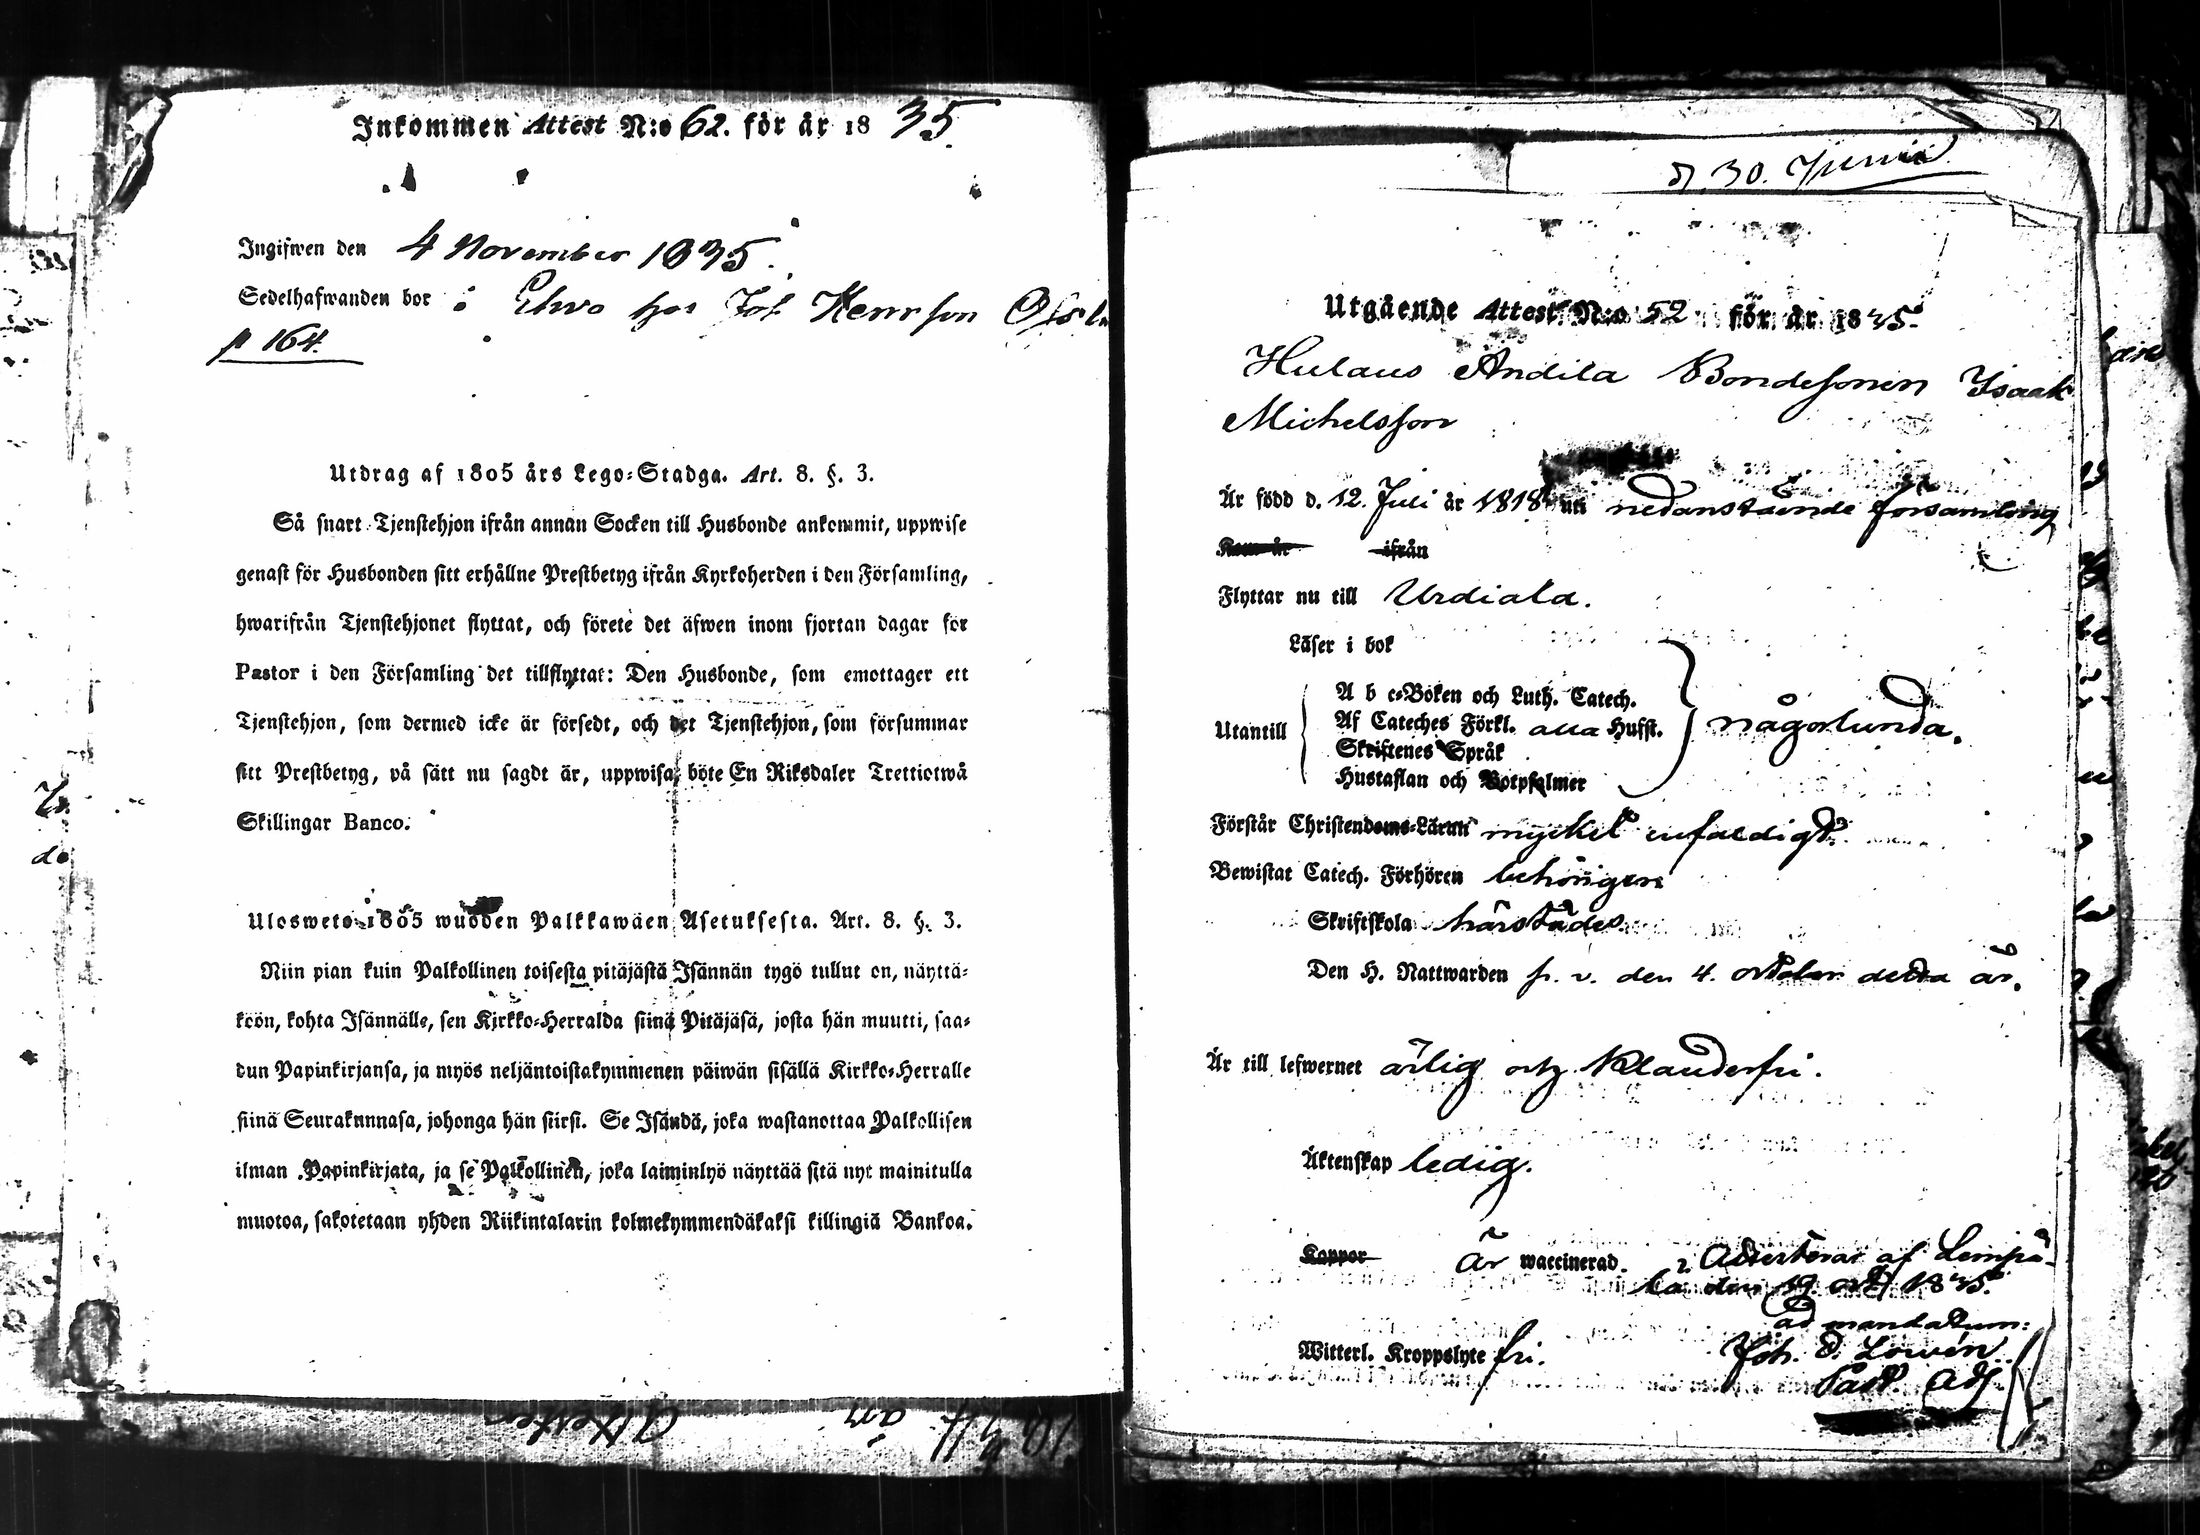 Inkommen Attest N:o 62. för år 1835.
Ingifwen den 4 November 1835.
Sedelhafwanden bor i hos Joh Henrsson
p 164.
Utdrag af 1805 års Lego=Stadga. Art. 8. §. 3.
Så snart Tjenstehjon ifrån annan Socken till Husbonde ankommit, uppwise
genast för Husbonden sitt erhållne Prestbetyg ifrån Kyrkoherden i den Församling,
hwarifrån Tjenstehjonet flyttat, och förete det äfwen inom fjortan dagar för
Pastor i den Församling det tillflyttat: Den Husbonde, som emottager ett
Tjenstehjon, som dermed icke är försedt, och det Tjenstehjon, som försummar
sitt Prestbetyg, på sätt nu sagdt är, uppwisa, böte En Riksdaler Trettiotwå
Skillingar Banco.
Uloswets 1805 wuoden Palkkawäen Asetuksesta. Art. 8. §. 3.
Niin pian kuin Palkollinen toisesta pitäjästä Isännän tygö tullut on, näyttä=
köön, kohta Isännälle, sen Kirkko=Herralda siinä Pitäjäsä, josta hän muutti, saa=
dun Papinkirjansa, ja myös neljäntoistakymmenen päiwän sisällä Kirkko=Herralle
siinä Seurakunnasa, johonga hän siirsi. Se Isändä, joka wastanottaa Palkollisen
ilman Papinkirjata, ja se Palkollinen, joka laiminlyö näyttää sitä nyt mainitulla
muotoa, sakotetaan yhden Riikintalarin kolmekymmendäkaksi killingiä Bankoa.
d. 30. Junii
Utgående Attest N:o 52 för år 1835.
Hulaus Andila Bondesonen Isaak
Michelsson
Är född d. 12. Juli år 1818 uti nedanstående församling
Kom år ifrån
Flyttar nu till Urdiala.
Läser i bok
Utantill
A b c=Boken och Luth. Catech.
Af Cateches Förkl. alla Hufst.
Skriftenes Språk
Hustaflan och Botpsalmer
någorlunda.
Förstår Christendoms=Läran mycket enfaldigt.
Bewistat Catech. Förhören behörigen
Skriftskola härstädes.
Den H. Nattwarden s. v. den 4. october detta år.
Är till lefwernet ärlig och klanderfri.
Äktenskap ledig.
Koppor är waccinerad. Attesterar af Lempä-
la den 19 oct 1835.
ad mandatum:
Witterl. Kroppslyte fri. Joh. D. Lowén
Past. Adj.